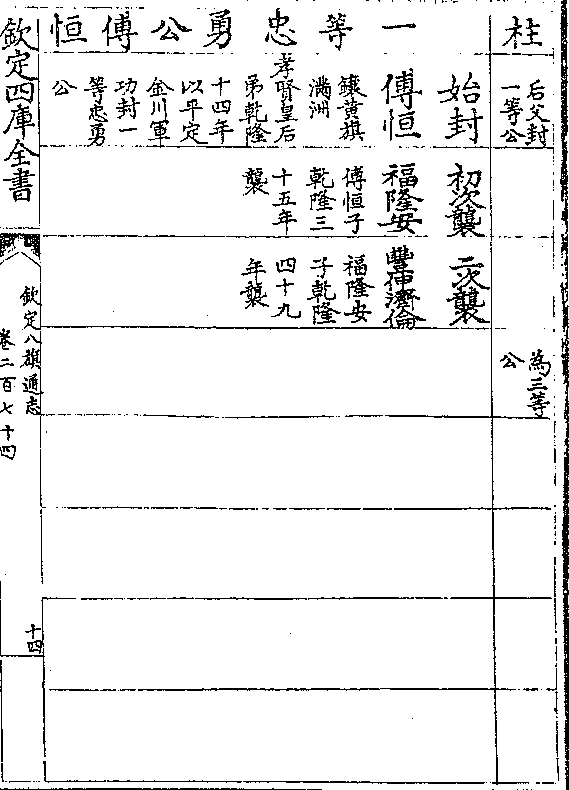 柱
后父封
一等公
為三等
公
一等忠勇公傅恒
始封
初次襲
二次襲
傅恒
鑲黃旗
滿洲
孝賢皇后
弟乾隆
十四年
以平定
金川軍
功封一
等忠勇
公
福隆安
傅恒子
乾隆三
十五年
襲
豐伸濟倫
福隆安
子乾隆
四十九
年襲
欽定四庫全書
欽定八旗通志
卷二百七十四
十四